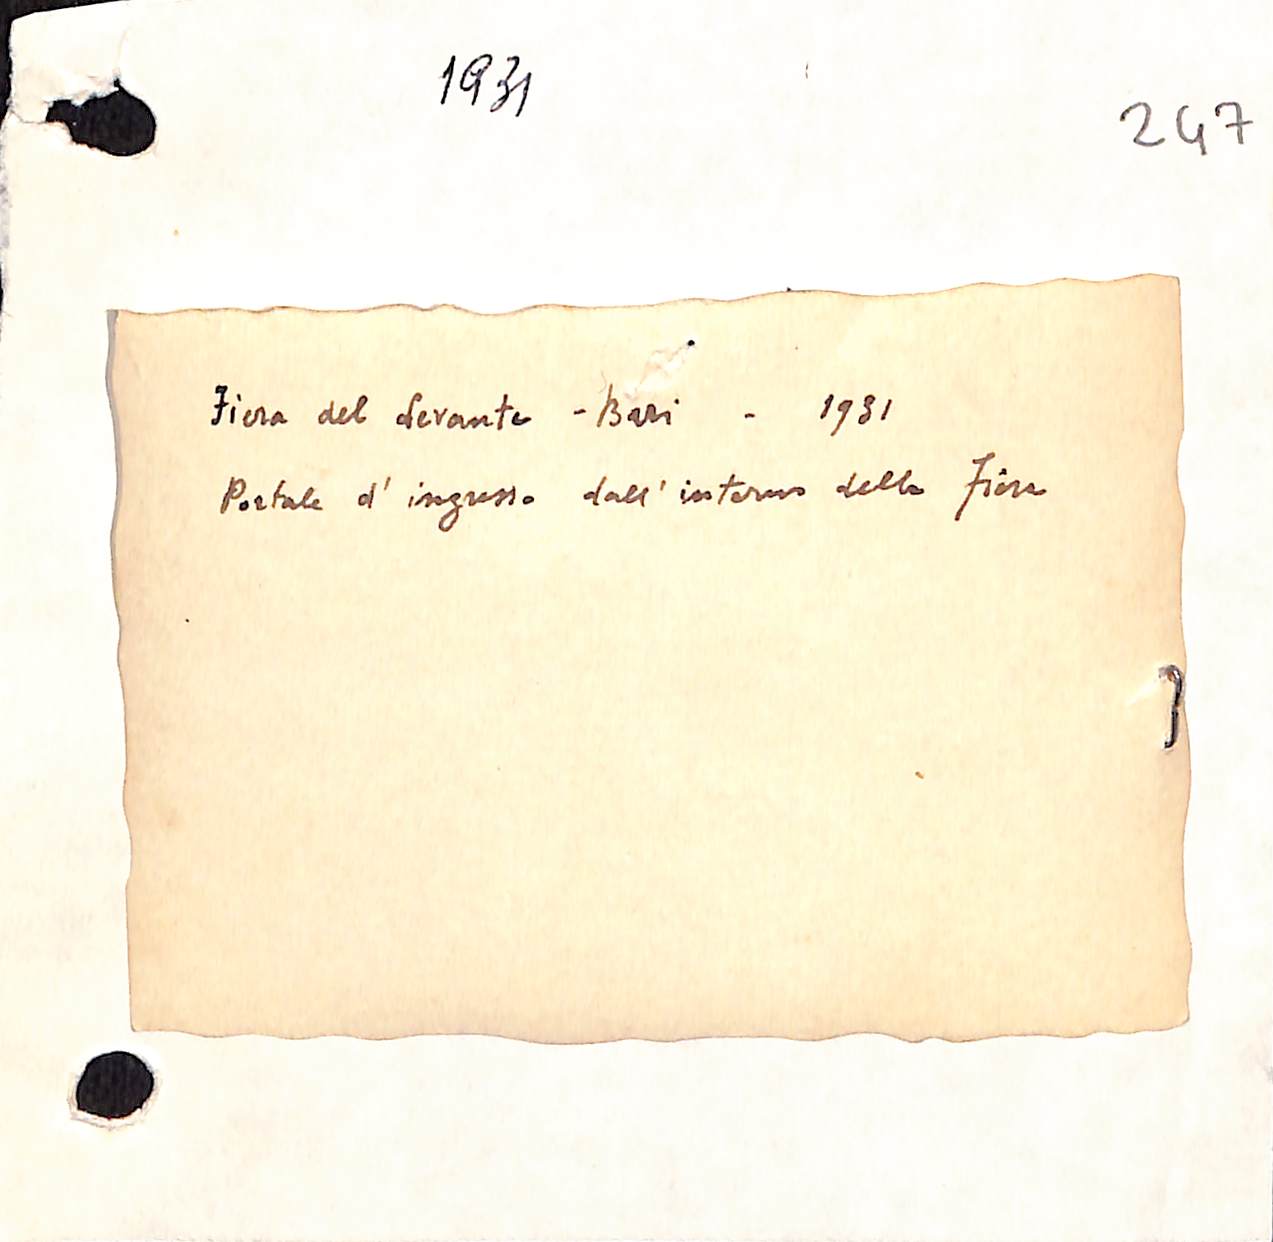 1931
247
Fiera del Levante - Bari - 1931
Portale d' ingresso dall' interno della Fiera